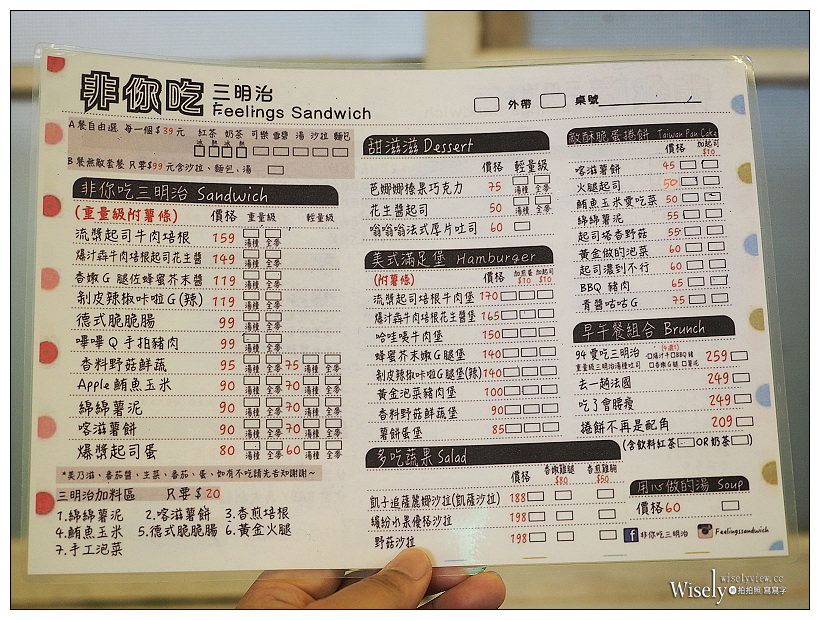 非你吃 三明治
Feelings Sandwich
外帶 桌號
A餐自由選 每一個$39元 紅茶 奶茶 可樂 雪碧 湯 沙拉 麵包
冰 熱 冰 熱
B餐無敵套餐 只要$99元含沙拉、麵包、湯
非你吃三明治 Sandwich
(重量級附薯條) 價格 重量級 輕量級
流漿起司牛肉培根 159 湯種 全麥
爆汁犇牛肉培根起司花生醬 149 湯種 全麥
香嫩G腿佐蜂蜜芥末醬 119 湯種 全麥
剝皮辣椒咔啦G(辣) 119 湯種 全麥
德式脆脆腸 99 湯種 全麥
嗶嗶Q手拍豬肉 99 湯種 全麥
香料野菇鮮蔬 95 湯種 全麥 75 湯種 全麥
Apple鮪魚玉米 90 湯種 全麥 70 湯種 全麥
綿綿薯泥 90 湯種 全麥 70 湯種 全麥
喀滋薯餅 90 湯種 全麥 70 湯種 全麥
爆漿起司蛋 80 湯種 全麥 60 湯種 全麥
*美乃滋、番茄醬、生菜、番茄、蛋、如有不吃請先告知謝謝~
三明治加料區 只要$20
1.綿綿薯泥 2.喀滋薯餅 3.香煎培根
4.鮪魚玉米 5.德式脆脆腸 6.黃金火腿
7.手工泡菜
甜滋滋 Dessert
價格 輕量級
芭娜娜榛果巧克力 75 湯種 全麥
花生醬起司 50 湯種 全麥
嗡嗡嗡法式厚片吐司 60
美式滿足堡 Hamburger
(附薯條) 價格 加煎蛋$10 加起司$10
流漿起司培根牛肉堡 170
爆汁犇牛肉培根花生醬堡 165
哈哇咦牛肉堡 150
蜂蜜芥末嫩G腿堡 140
剝皮辣椒咔啦G腿堡(辣) 140
黃金泡菜豬肉堡 100
香料野菇鮮蔬堡 90
薯餅蛋堡 85
多吃蔬果 Salad
價格 香嫩雞腿$80 香煎雞胸$50
凱子追薩麗娜沙拉(凱薩沙拉) 188
繽紛水果優格沙拉 198
野菇沙拉 198
敵酥脆蛋捲餅 Taiwan Pan Cake
價格 加起司$10
喀滋薯餅 45
火腿起司 50
鮪魚玉米愛吃菜 50
綿綿薯泥 55
起司塔香野菇 55
黃金做的泡菜 60
起司濃到不行 60
BBQ 豬肉 65
青醬咕咕G 75
早午餐組合 Brunch
94愛吃三明治 259
重量級三明治湯種吐司
去一趟法國 249
吃了會膀瘦 249
捲餅不再是配角 209
(含飲料紅茶 OR奶茶)
用心做的湯 Soup
價格60
非你吃三明治 Feelingssandwich
wiselyview.cc
Wisely 的拍拍照寫寫字